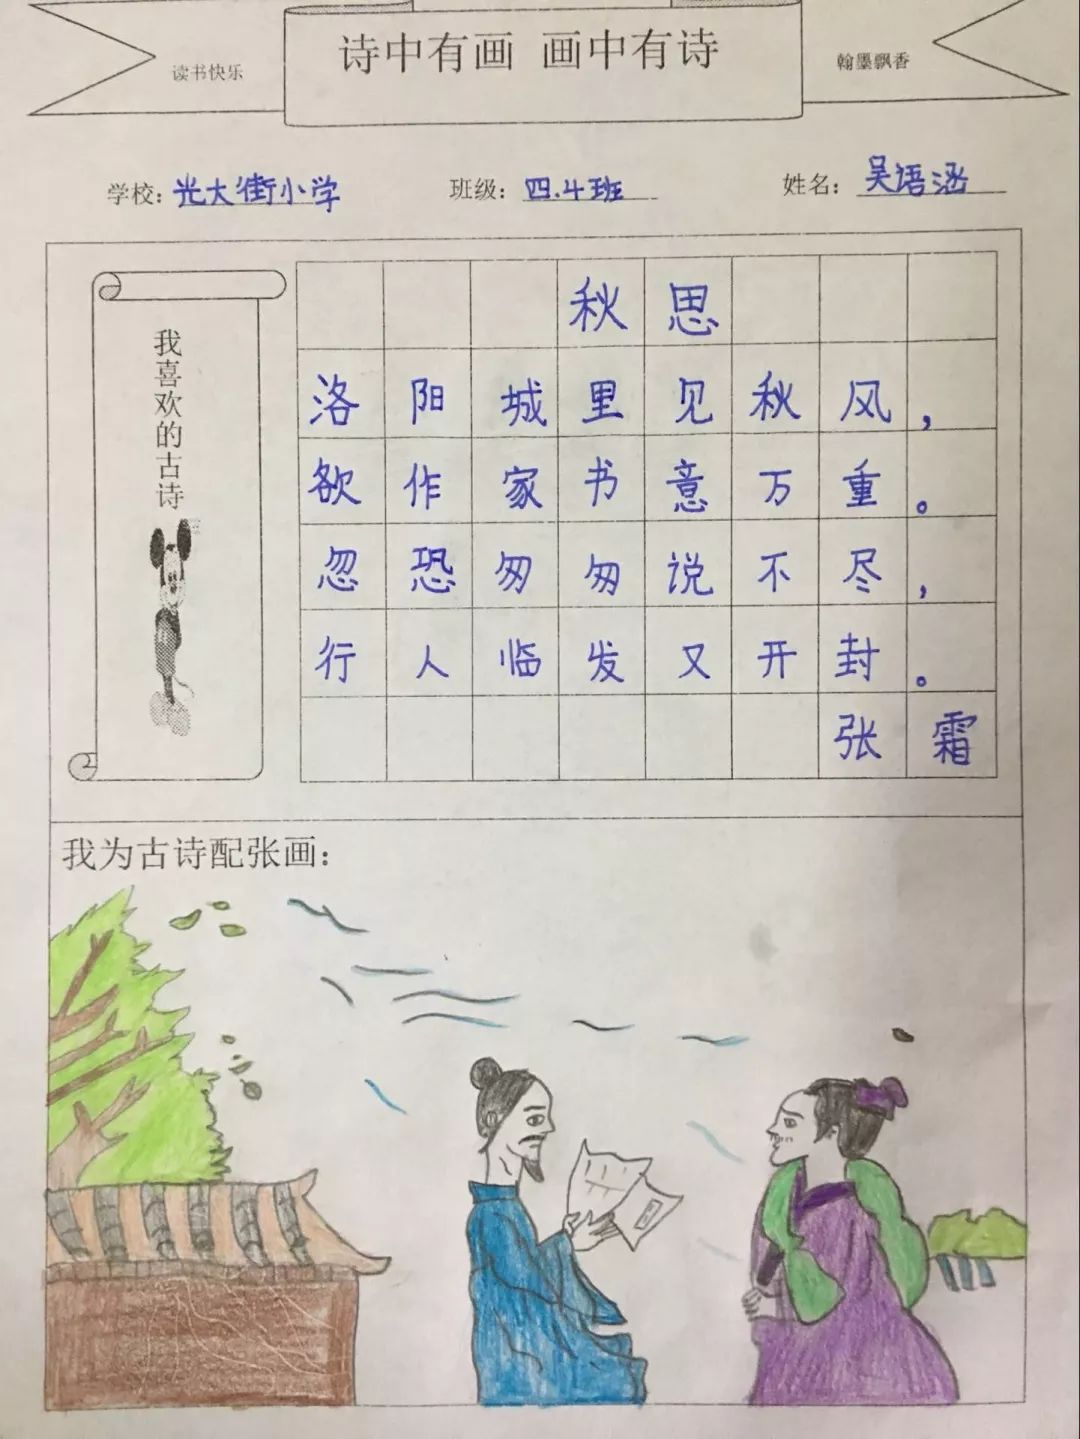 读书快乐
诗中有画 画中有诗
翰墨飘香
学校：光大街小学 班级：四.4班 姓名：吴语涵
我喜欢的古诗
秋思
洛阳城里见秋风，
欲作家书意万重。
忽恐匆匆说不尽，
行人临发又开封。
张霜
我为古诗配张画：